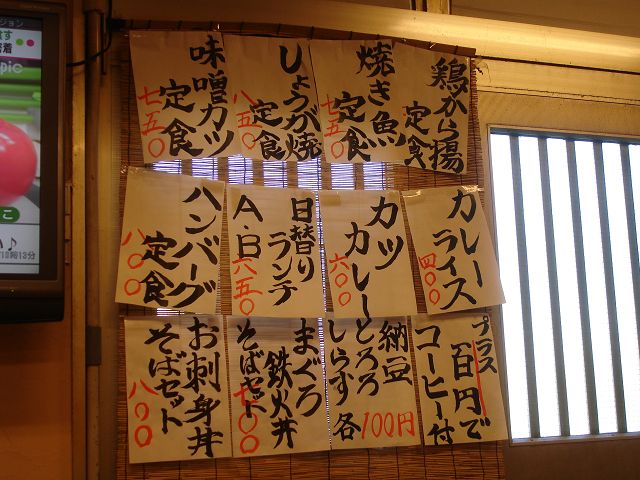 鶏から揚
定食
焼き魚
定食
七五〇
しょうが焼
定食
八五〇
味噌カツ
定食
七五〇
カレー
ライス
四〇〇
カツ
カレー
六〇〇
日替り
ランチ
A・B
六五〇
ハンバーグ
定食
八〇〇
プラス
百円で
コーヒー付
納豆
とろろ
しらす
各100円
まぐろ
鉄火丼
そばセット
七〇〇
お刺身丼
そばセット
八〇〇